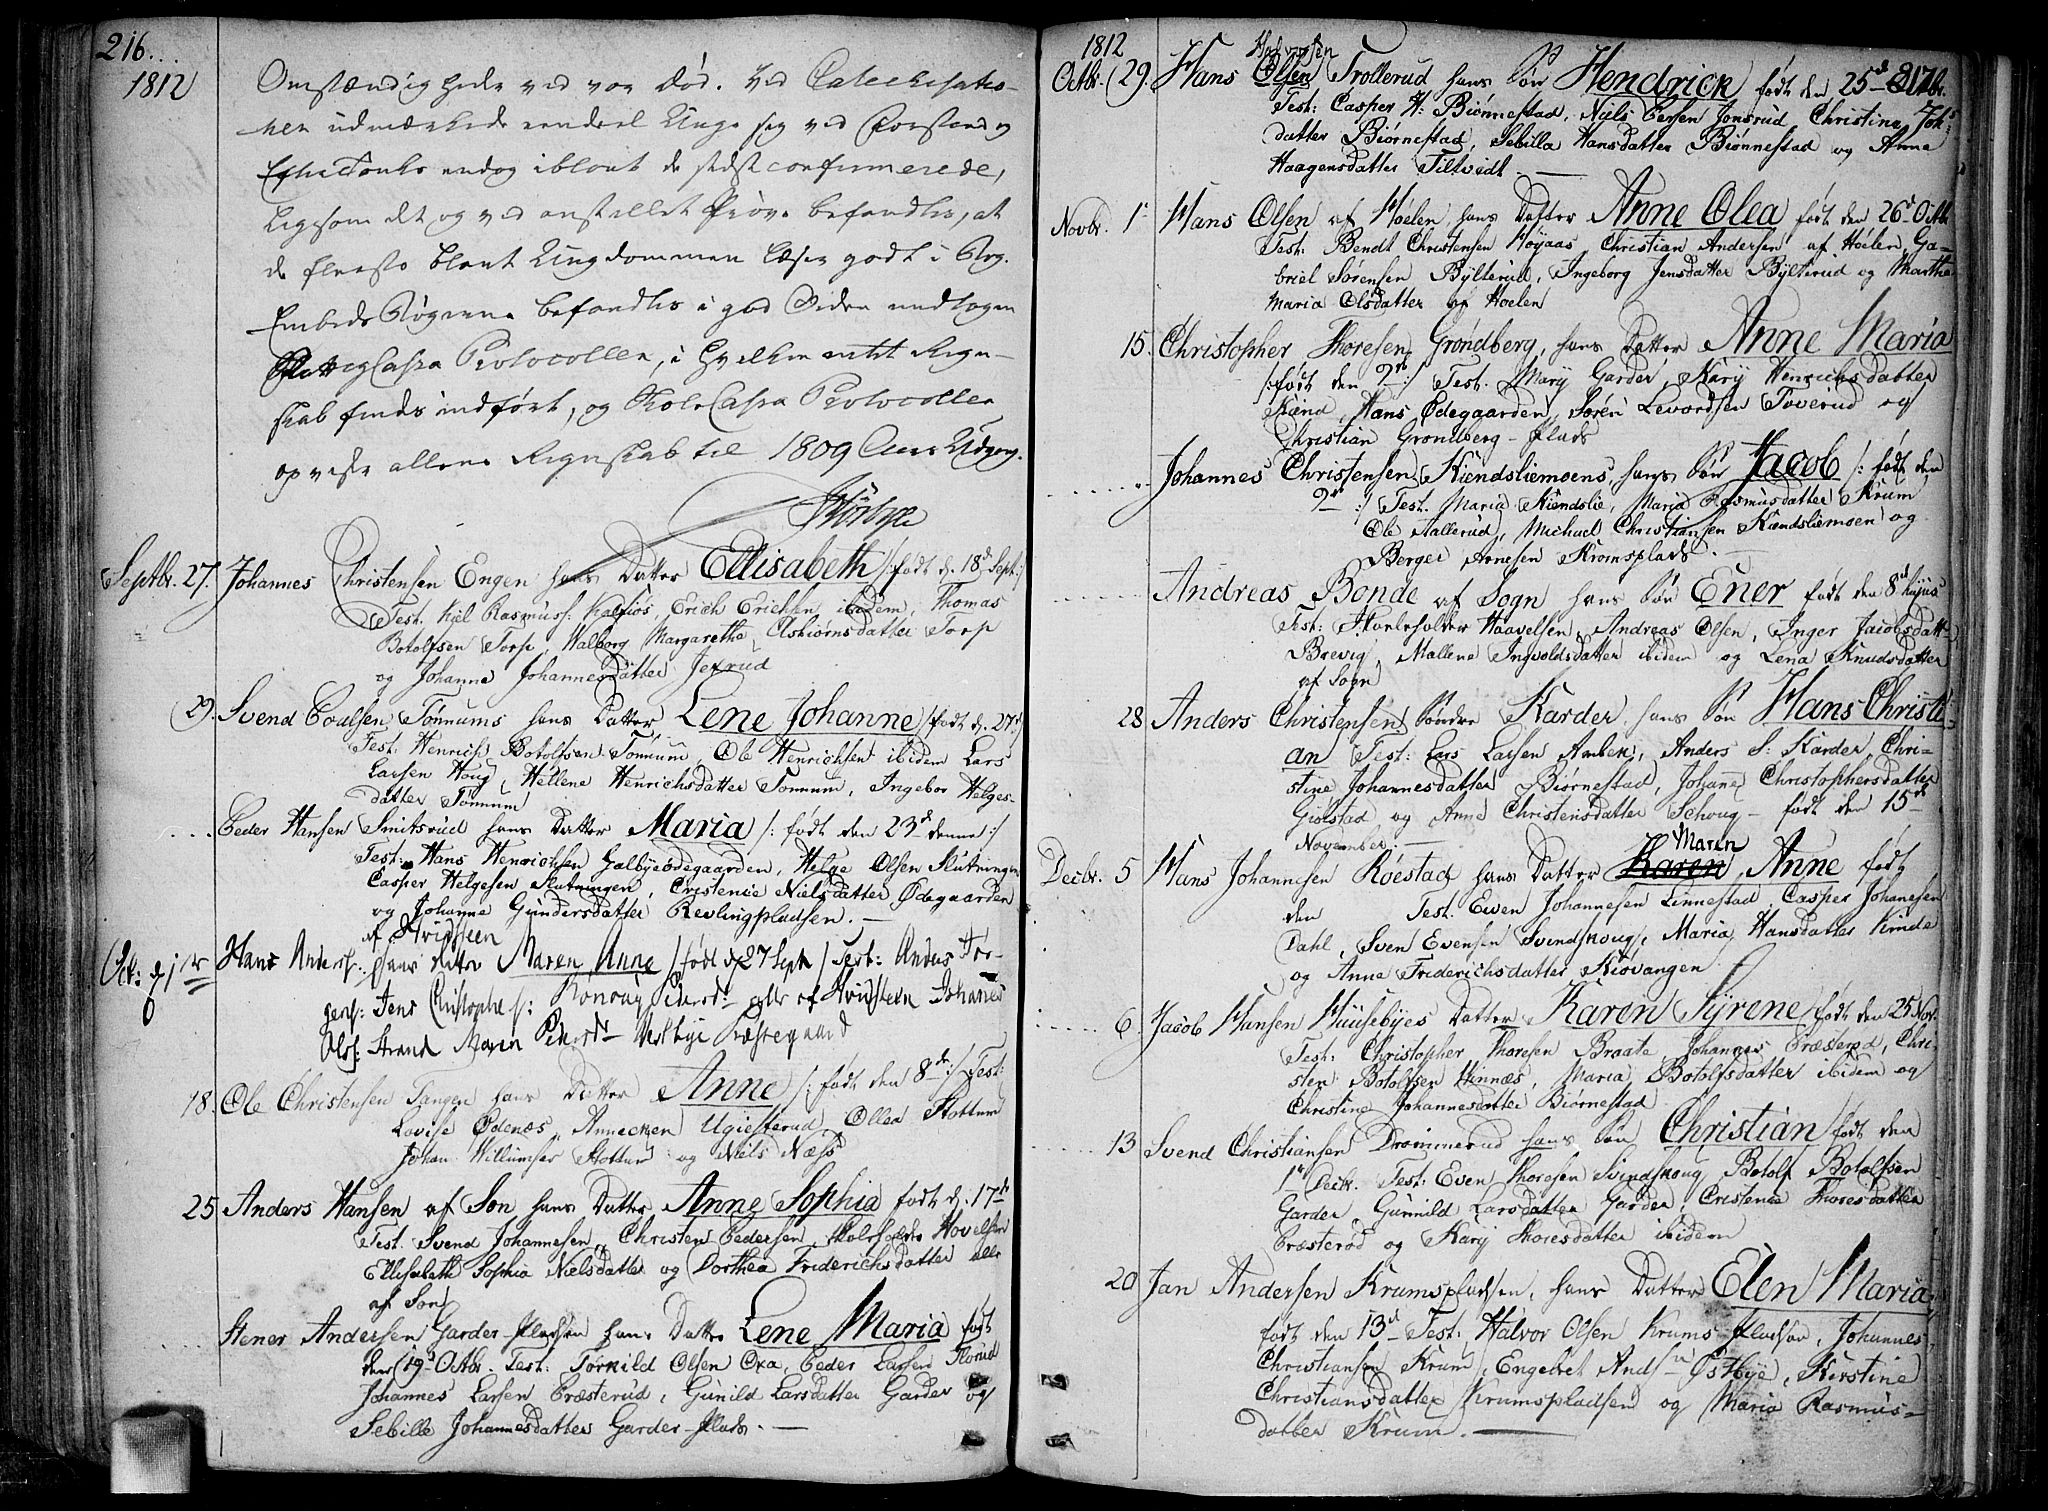 216.
1812
Omstændigheder ved vor Død. Ved Catechisatio-
nen udmærkede endeel Unge sig ved Forstand og
endog iblant de sidst confirmerede,
ligesom det og ved anstellet Prøve befandtes, at
de fleeste blant Ungdommen læser godt i Bog.
Embeds Bøgerne befandtes i god Orden undtagen
FattigCassa Protocollen, i hvilken intet Regn-
skab findes indført, og SkoleCassa Protocollen
opviste allene Regnskab til 1809 Aars Udgang.
Septbr. 27. Johannes Christensen Engen hans Datter Ellisabeth /: født d. 18d Sept: /
Test. Kiel Rasmuss: Kalfiøs, Erich Erichsen ibidem, Thomas
Botolfsen Torp, Walborg Margarethe Asbiørnsdatter Torp
og Johanne Johannesdatter Jetrud
29. Svend Poulsen Tønnums hans Datter Lene Johanne /: født d. 27d /
Test. Henrich Botolfsen Tønnum, Ole Henrichsen ibidem Lars
Larsen Houg, Hellene Henrichsdatter Tønnum, Ingebor Helges-
datter Tønnum
Peder Hansen Smitsrud hans Datter Maria /: født den 23d denne :/
Test: Hans Henrichsen Galbyeødegaarden, Helge Olsen Slutningen
Casper Helgesen Slutningen, Cristence Nielsdatter Ødegaarden
og Johanne Gundersdatter Revlingpladsen. —
af Hvidsteen
Oct: d 1ste Hans Anders: hans datter Maren Anne / født d 27 Sept / Test: Anders Tor-
gens: Jens Christophe s: Ronoug Pedersdr alle af Hvidsteen Johanes
Ols: Strand Maren Pedersdr Vestbye Præstegaard
18. Ole Christensen Tangen hans Datter Anne /: født den 8de :/ Test:
Lovise Ødenæs, Annecken Ugiesterud, Ollea Stottum
Johan Willumsen Stottum og Niels Næss
25 Anders Hansen af Son hans Datter Anne Sophia født d. 17de
Test. Svend Johannesen, Christen Pedersen, Skoleholder Hovelsen
Ellisabeth Sophia Nielsdatter og Dorthea Friderichsdatter alle
af Son
Stener Andersen Garder-Pladsen hans Datter Lene Maria født
den 19d Octbr. Test: Torkild Olsen Oxa, Peder Larsen Florud
Johannes Larsen Præsterud, Gunild Larsdatter Garder og
Sebille Johannesdatter Garder-Plads. —
1812
217
Octbr. 29. Hans Olsen Trollerud hans Søn Hendrick født den 25d Octbr.
Test: Casper H: Biønnestad, Niels Persen Jonsrud, Christine Joh:
datter Biørnestad, Sebilla Hansdatter Biønnestad og Anne
Haagensdatter Tiltvidt. —
Novbr. 1 Hans Olsen af Hoelen, hans Datter Anne Olea født den 26d Octbr
Test: Bendt Christensen Høyaas, Christian Andersen af Hoelen Ga-
briel Sørensen Bylterud, Ingeborg Jensdatter Bylterud og Marthe
Maria Olsdatter af Hoelen
15. Christopher Thoresen Grøndberg, hans Datter Anne Maria
/: født den 2de :/ Test. Mary Garder, Kary Henrichsdatter
Kiend, Hans Ødegaarden, Søren Levordsen Toverud og
Christian Grøndberg-Plads
Johannes Christensen Kiendsliemoens, hans Søn Jacob /: født den
2de :/ Test. Maria Kiendslie, Maria Rasmusdatter Krum
Ole Aallerud, Michael Christiansen Kiendsliemoen og
Berger Arnesen Kromsplads. —
Andreas Bonde af Sogn hans Søn Ener født den 8de hujus
Test: Skoleholder Haavelsen, Andreas Olsen, Inger Jacobsdatt-
Brevig, Mallene Ingvoldsdatter ibidem og Lena Knudsdatter
af Sogn
28 Anders Christensen Søndre Karder hans Søn Hans Christi-
an Test: Lars Larsen Ambek, Anders S: Karder, Chri-
stine Johannesdatter Biørnestad, Johanne Christophersdatter
Giølstad og Anne Christensdatter Schoug — født den 15de
November. —
Maren
Decbr. 5 Hans Johannesen Røestad hans Datter Karen Anne født
den Test. Even Johannesen Linnestad, Casper Johanesen
Dahl, Sven Evensen Svendskoug, Maria Hansdatter Kinde
og Anne Friderichsdatter Kiøvangen
6. Jacob Hansen Huusebyes Datter Karen Syrene født den 25 Nov.
Test: Christopher Thoresen Braate, Johannes Præsterød, Chri-
sten Botolfsen Hinnæs, Maria Botolfsdatter ibidem og
Christine Johannesdatter Biørnestad
13 Svend Christiansen Drømmerud hans Søn Christian født den
1te Decbr. Test: Even Thoresen Svindskoug Botolf Botolfsen
Garder Gunnild Larsdatter Garder, Cristence Thoresdatter
Præsterød og Kary Thoresdatter ibidem
20 Jan Andersen Krumspladsen, hans Datter Elen Maria
født den 13d Test: Halvor Olsen Krums-Pladsen, Johannes
Christiansen Krum, Engebret Andsn Østbye, Kirstine
Christiansdatter Krumspladsen og Maria Rasmus-
datter Krum. —